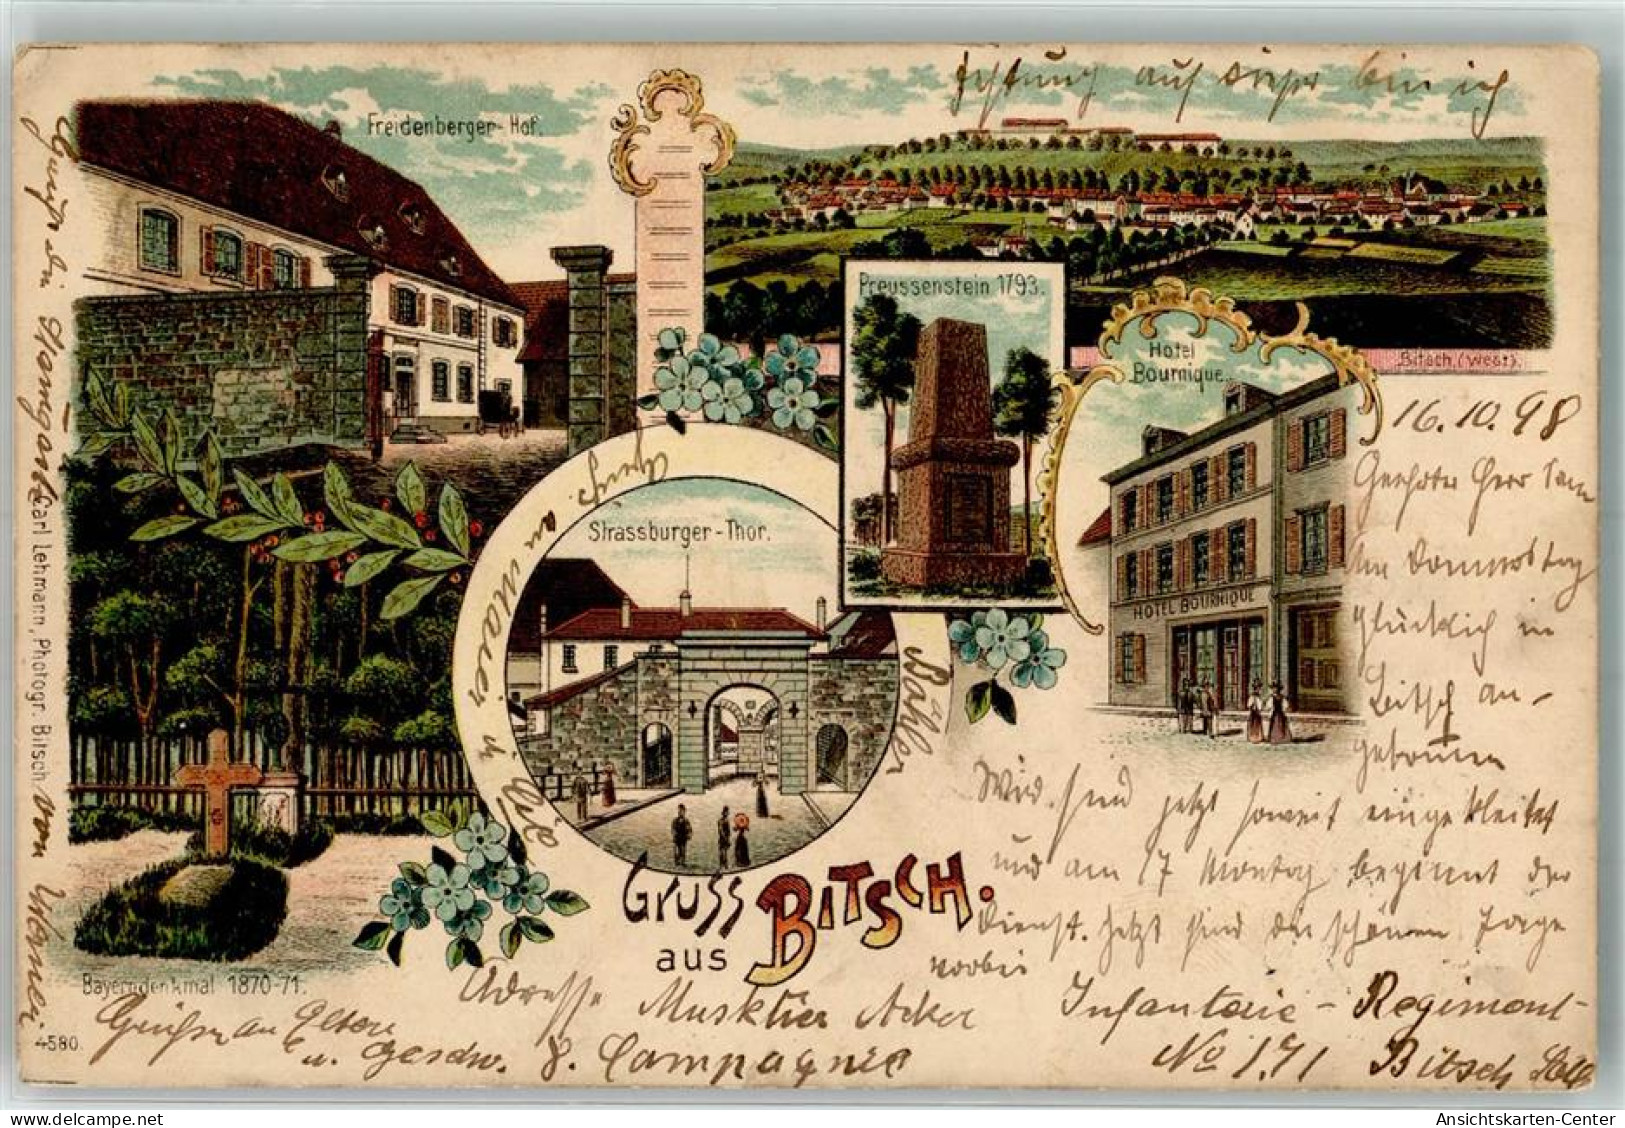 Festung auf dieser bin ich
Freidenberger-Hof.
Preussenstein 1793.
Hotel
Bournique.
Bitsch (West).
HOTEL BOURNIQUE
Strassburger-Thor.
Gruss
aus
BITSCH.
Bayerndenkmal 1870-71.
4580.
Carl Lehmann, Photogr. Bitsch
16.10.98
Geehrter Herr
Am Donnerstag
glücklich in
Bitsch an-
gekommen
Wir sind jetzt soweit eingekleidet
und am 17 Montag beginnt der
Dienst. Jetzt sind die schönen Tage
vorbei
Adresse Musktier Acker Infanterie-Regiment
8. Compagnie No 171 Bitsch
Grüße an Eltern
u. Geschw.
von Werner.
Gruß an Maier in